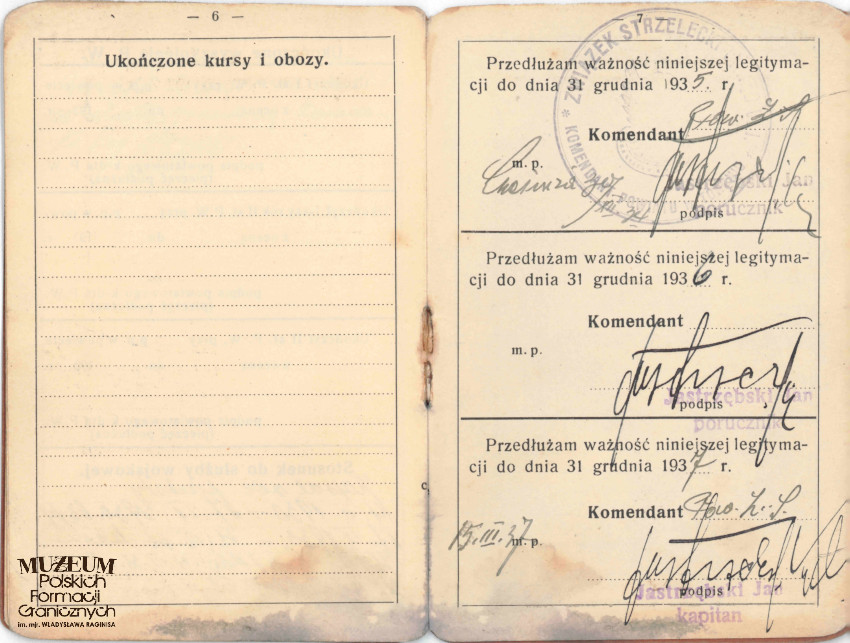 — 6 —
Ukończone kursy i obozy.
MUZEUM
Polskich
Formacji
Granicznych
im. mjr. WŁADYSŁAWA RAGINISA
— 7 —
ZWIĄZEK STRZELECKI
Przedłużam ważność niniejszej legityma-
cji do dnia 31 grudnia 1935. r.
Komendant Pow. Z. S.
m. p.
Jastrzębski Jan
porucznik
podpis
Przedłużam ważność niniejszej legityma-
cji do dnia 31 grudnia 1936 r.
Komendant
m. p.
Jastrzębski Jan
podpis
porucznik
Przedłużam ważność niniejszej legityma-
cji do dnia 31 grudnia 1937 r.
Komendant Pow. Z. S.
15.III.37
m. p.
Jastrzębski Jan
podpis
kapitan